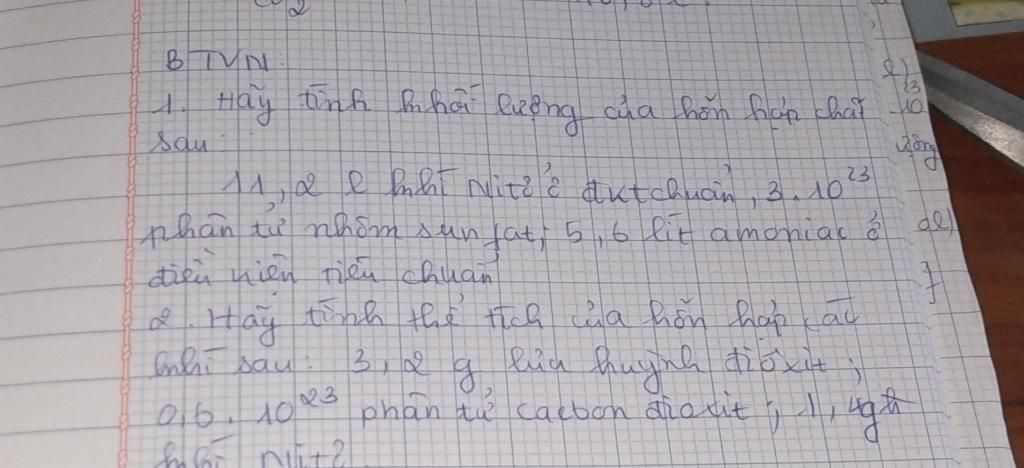 BTVN:
1. Hãy tính khối lượng của hỗn hợp chất
sau:
11,2 l khí Nitơ ở đktchuẩn, 3.10²³
phân tử nhôm sunfat, 5,6 lít amoniac ở
điều kiện tiêu chuẩn
2. Hãy tính thể tích của hỗn hợp các
khí sau: 3,2 g lưu huỳnh đioxit;
0,6.10²³ phân tử cacbon đioxit; 1,4g
khí Nitơ